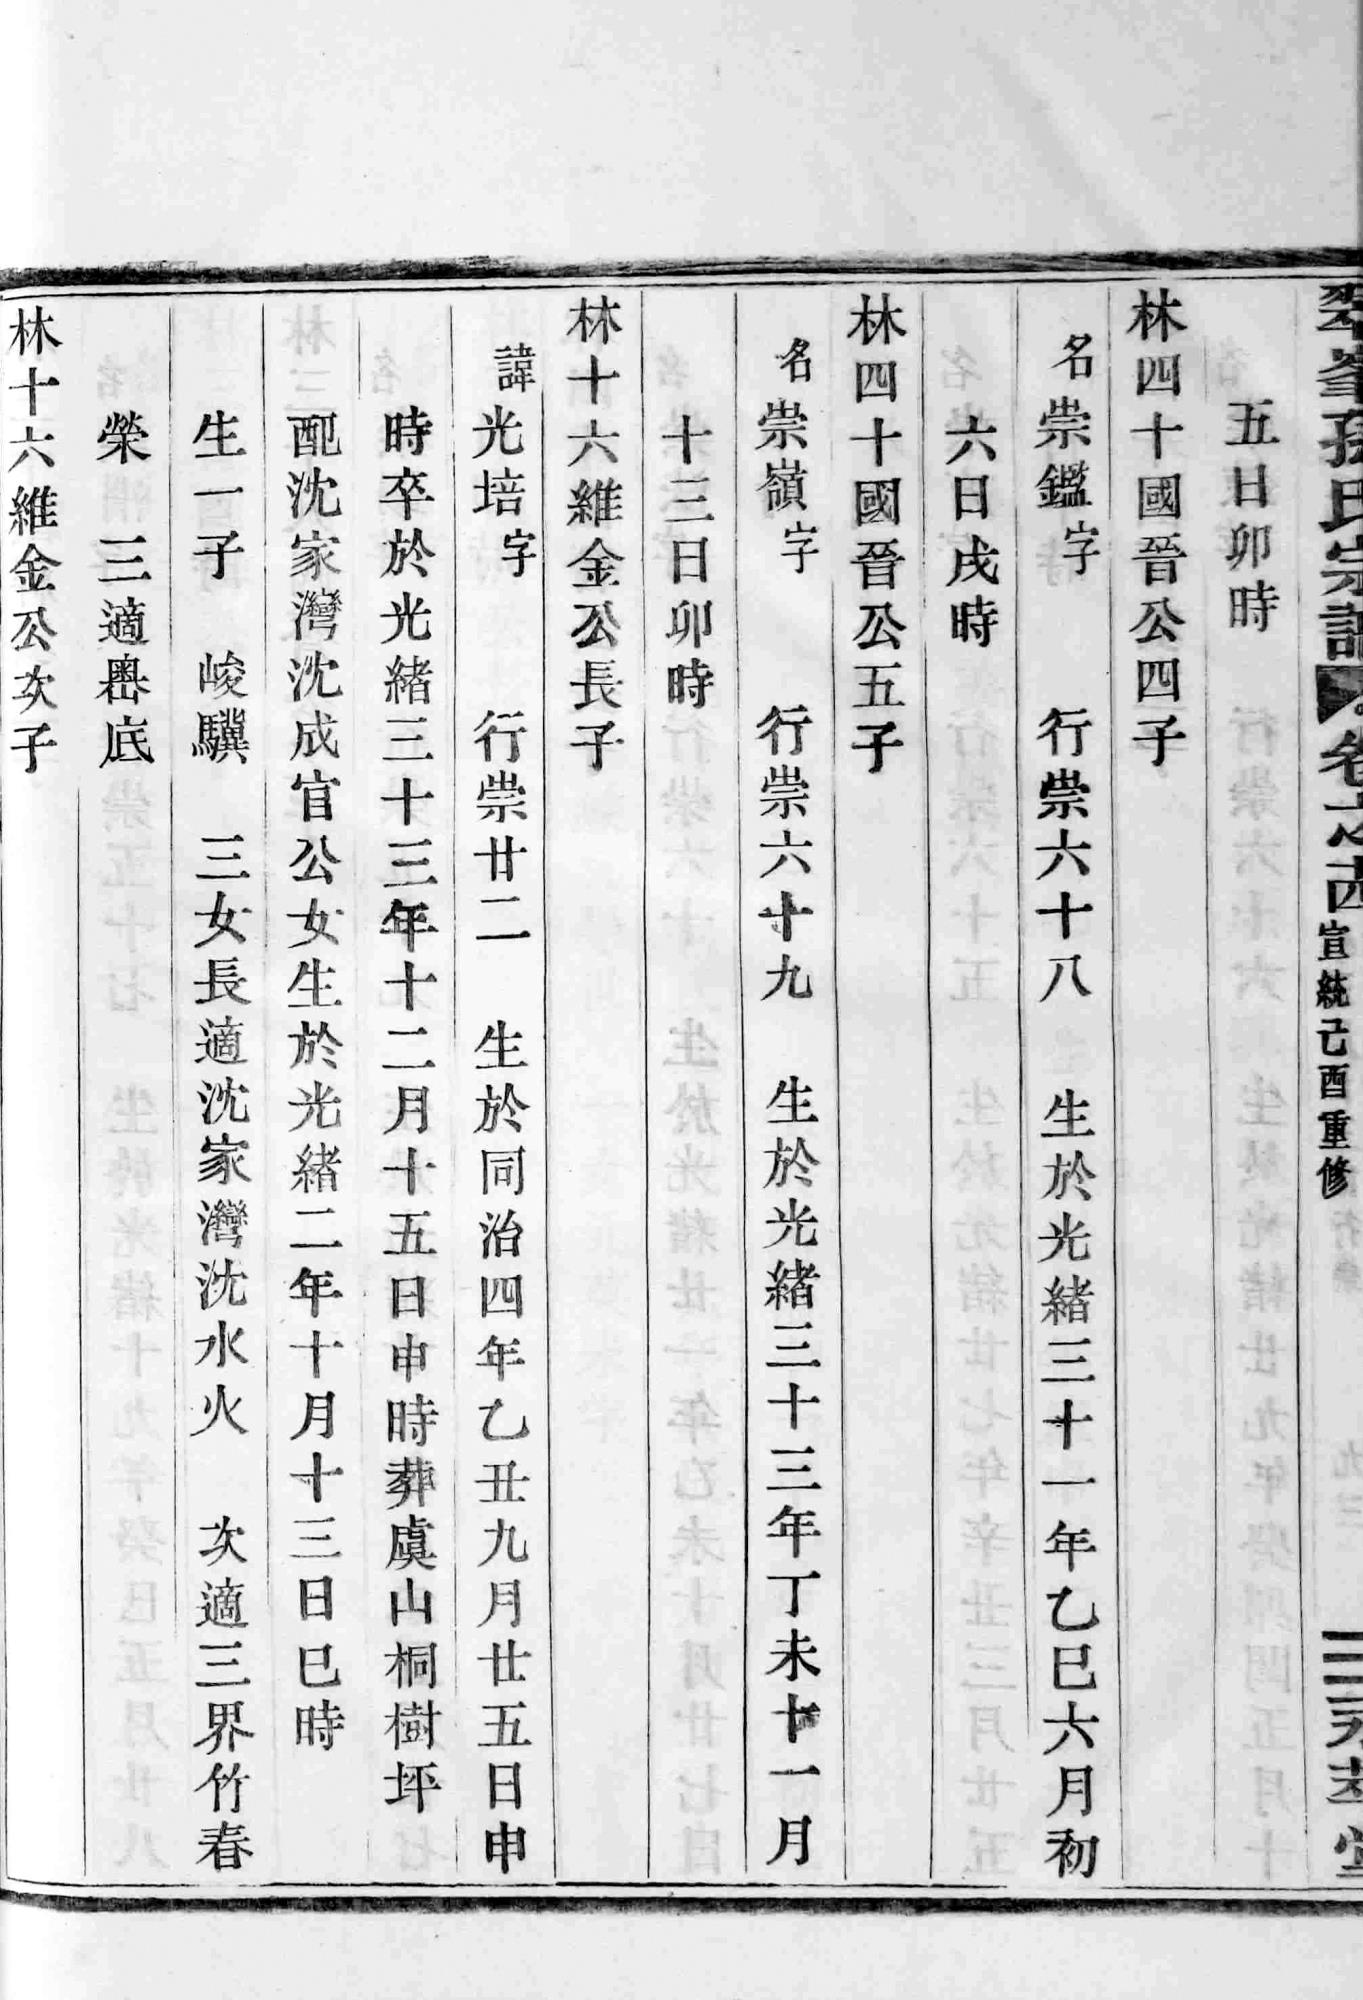 峯孫氏宗譜 卷之 宣統己酉重修 永 堂
五日卯時
林四十國晉公四子
名崇鑑字 行崇六十八 生於光緒三十一年乙巳六月初
六日戌時
林四十國晉公五子
名崇嶺字 行崇六十九 生於光緒三十三年丁未十一月
十三日卯時
林十六維金公長子
諱光培字 行崇廿二 生於同治四年乙丑九月廿五日申
時卒於光緒三十三年十二月十五日申時葬虞山桐樹坪
配沈家灣沈成官公女生於光緒二年十月十三日巳時
生一子 峻驥 三女長適沈家灣沈水火 次適三界竹春
榮 三適嶴底
林十六維金公次子